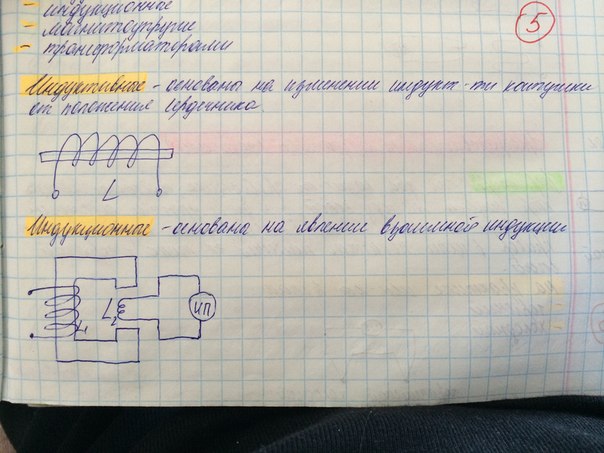 - индукционные
- магнитоупругие
- трансформаторами
5
Индуктивные - основаны на изменении индукт-ти катушки
от положения сердечника.
L
Индукционные - основана на явлении взаимной индукции
L₁
L₂
ИП